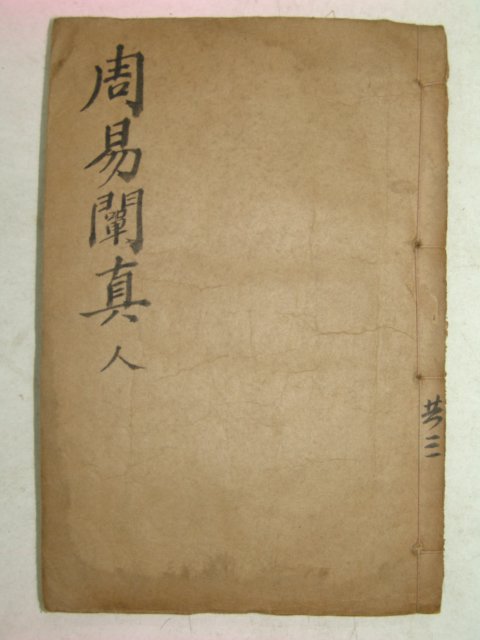 周易闡真 人
共三